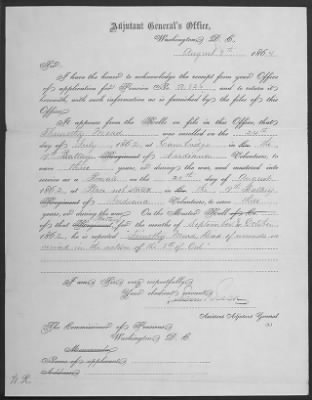 Adjutant General's Office,
Washington D. C.
August 9th 1864
Sir:
I have the honor to acknowledge the receipt from your Office
of application for Pension No.
and to return it
herewith with such information as is furnished by the files of this
Office.
It appears from the Rolls on file in this Office, that
Timothy was enrolled on the 24th
day of July 1862, at Cambridge in the
19th Battery Regiment of Indiana Volunteers, to
serve three years, or during the war, and mustered into
service as a Private on the day of August
1862, at Place not stated in the 19th Battery
Regiment of Indiana Volunteers, to serve three
years, or during the war. On the Muster Roll
of that for the months of September & October
1862, he is reported "Timothy dead of wounds
received in the action of the 8th of Oct."
I am Sir very respectfully
Your obedient servant
Assistant Adjutant General
The Commissioner of Pensions
Washington D. C.
Memoranda
Name of applicant
Address